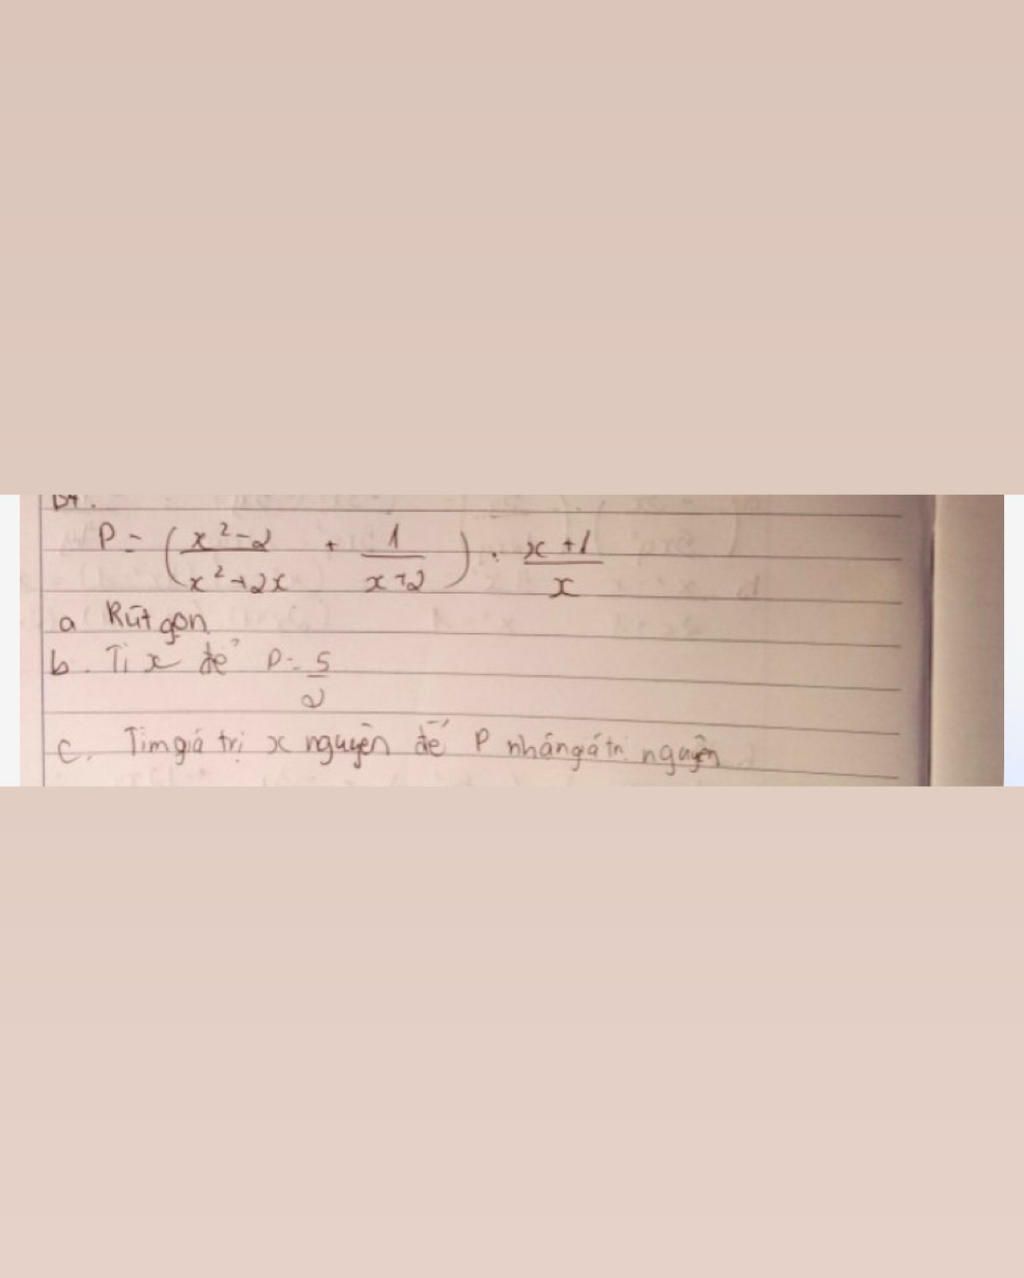 P = ( x²-2 / x²+2x + 1 / x+2 ) . x+1 / x
a Rút gọn
b. Tì x để P = 5/2
c. Tìm giá trị x nguyên để P nhán giá trị nguyên